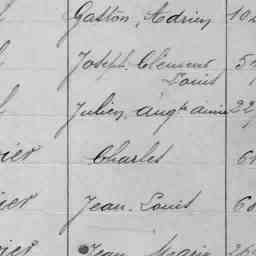 Gaston, Adrien 10
Joseph. Clément 5
Louis
Julien, aug^te aimé 22
vier Charles 6
ier Jean. Louis 60
vier Jean 26